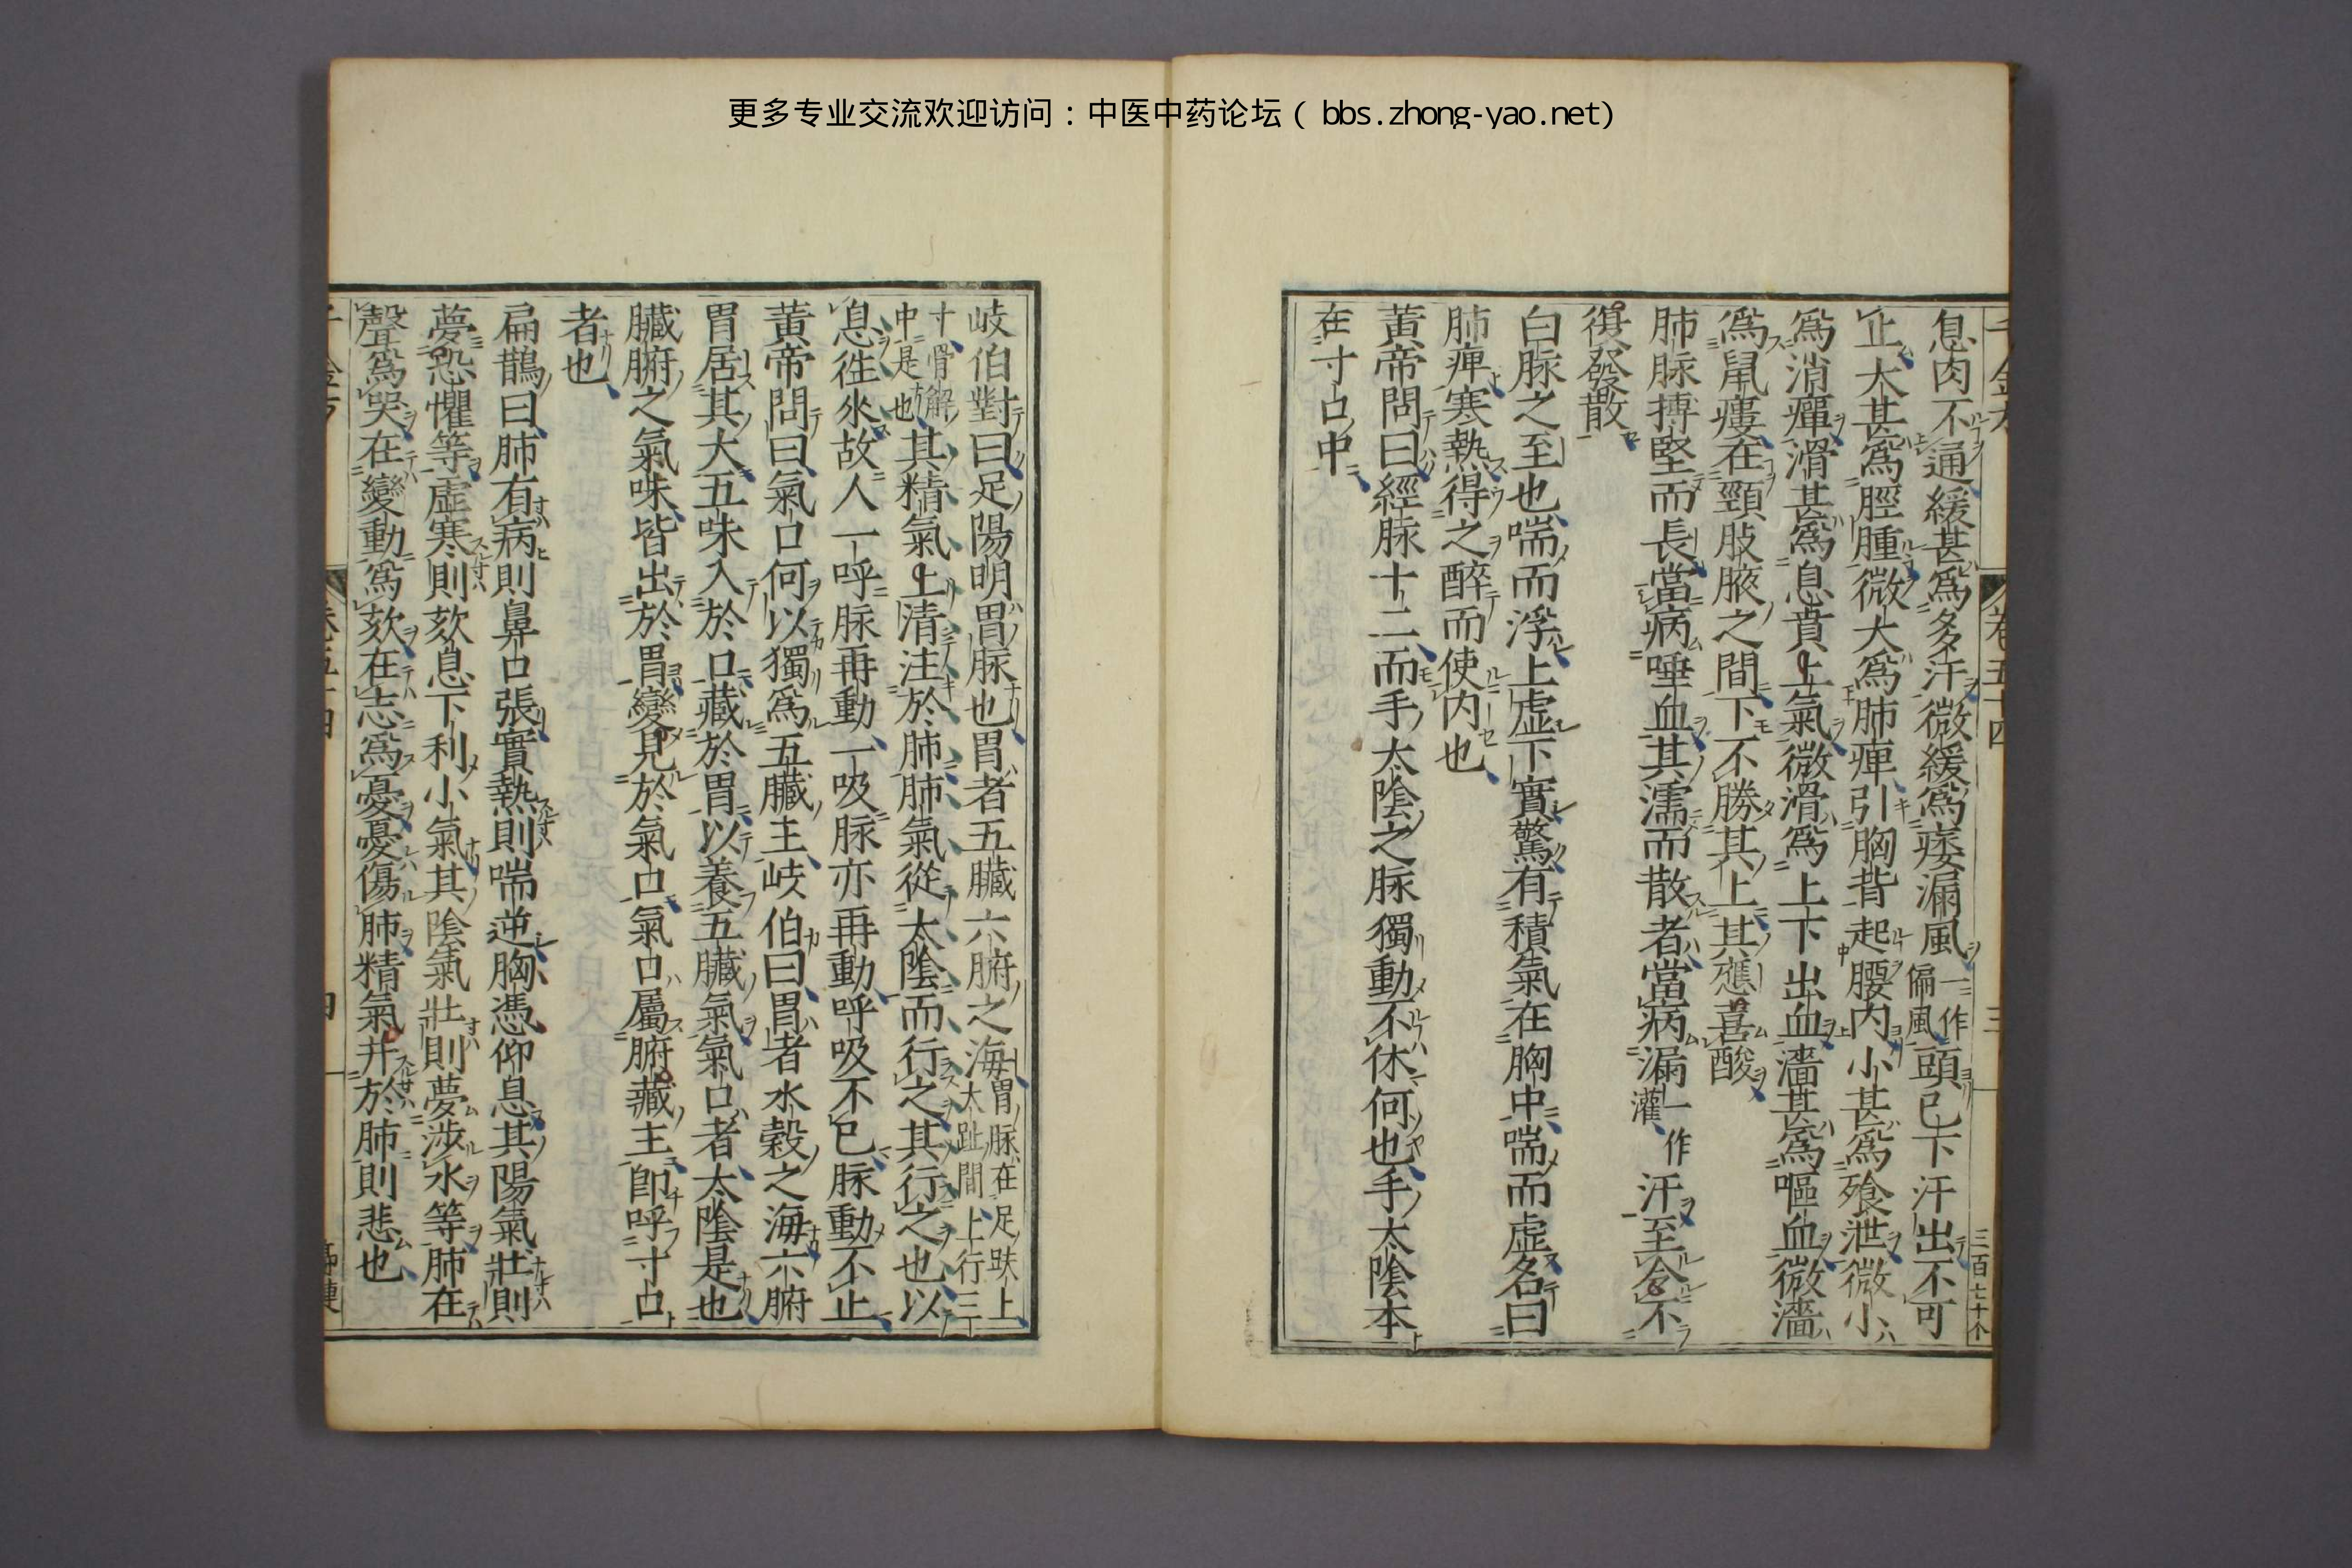 更多专业交流欢迎访问：中医中药论坛（bbs.zhong-yao.net）
息肉不通緩甚爲多汗微緩爲痿漏風一作偏風頭已下汗出不可
止大甚爲脛腫微大爲肺痺引胸背起腰内小甚爲飱泄微小
爲消癉滑甚爲息賁上氣微滑爲上下出血濇甚爲嘔血微濇
爲鼠瘻在頸肢腋之間下不勝其上其應喜酸
肺脉搏堅而長當病唾血其濡而散者當病漏一作灌汗至令不
復發散
白脉之至也喘而浮上虚下實驚有積氣在胸中喘而虚名曰
肺痺寒熱得之醉而使内也
黄帝問曰經脉十二而手太陰之脉獨動不休何也手太陰本
在寸口中
岐伯對曰足陽明胃脉也胃者五臓六腑之海胃脉在足趺上大趾間上行三
寸骨解中是也其精氣上清注於肺肺氣從太陰而行之其行之也以
息徃來故人一呼脉再動一吸脉亦再動呼吸不已脉動不止
黄帝問曰氣口何以獨爲五臓主岐伯曰胃者水穀之海六腑
胃居其大五味入於口藏於胃以養五臓氣氣口者太陰是也
臓腑之氣味皆出於胃變見於氣口氣口屬腑藏主即呼寸口
者也
扁鵲曰肺有病則鼻口張實熱則喘逆胸憑仰息其陽氣壯則
夢恐懼等虚寒則欬息下利少氣其陰氣壯則夢涉水等肺在
聲爲哭在變動爲欬在志爲憂憂傷肺精氣并於肺則悲也